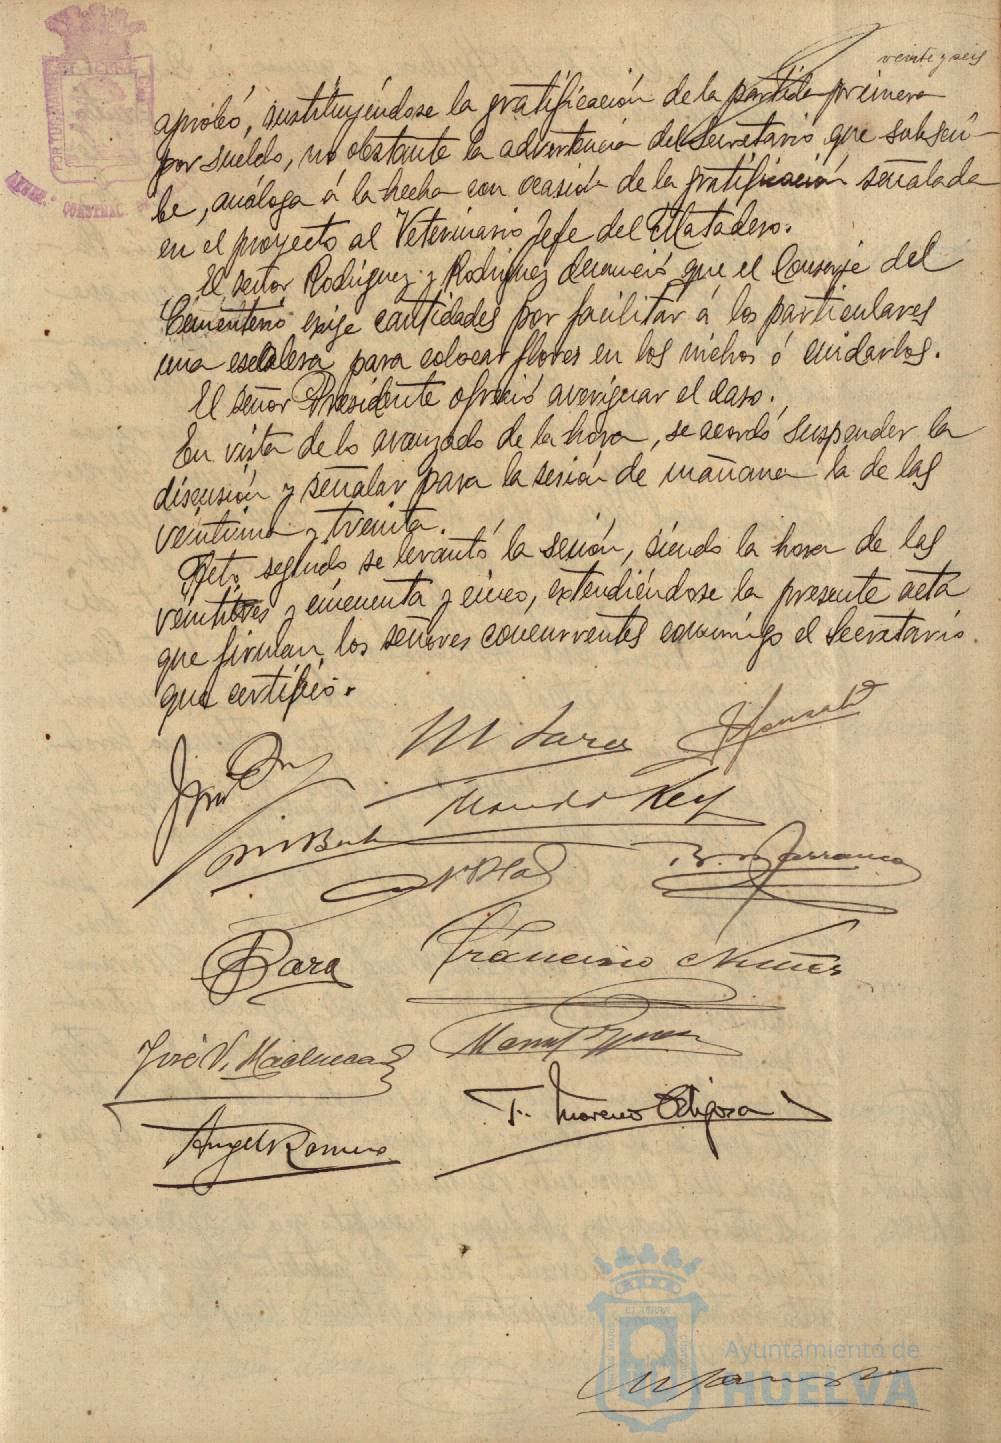 veinte y seis
aprobó, sustituyéndose la gratificación de la partida primera
por sueldo, no obstante la advertencia del Secretario que subscri-
be, análoga á la hecha con ocasión de la gratificación señalada
en el proyecto al Veterinario Jefe del Matadero.
El señor Rodríguez y Rodríguez denunció que el Conserje del
Cementerio exige cantidades por facilitar á los particulares
una escalera para colocar flores en los nichos ó cuidarlos.
El señor Presidente ofreció averiguar el caso.
En vista de lo avanzado de la hora, se acordó suspender la
discusión y señalar para la sesión de mañana la de las
veintiuna y treinta.
Acto seguido se levantó la sesión, siendo la hora de las
veintitres y cincuenta y cinco, extendiéndose la presente acta
que firman los señores concurrentes conmigo el Secretario
que certifico.
M Jara
Rey
Barranco
Francisco Nuñez
José V. Machuca
Angel Romero
F. Moreno Ortigosa
Ayuntamiento de
HUELVA